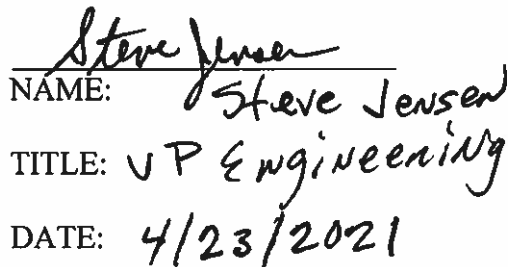 Steve Jensen
NAME: Steve Jensen
TITLE: VP Engineering
DATE: 4/23/2021